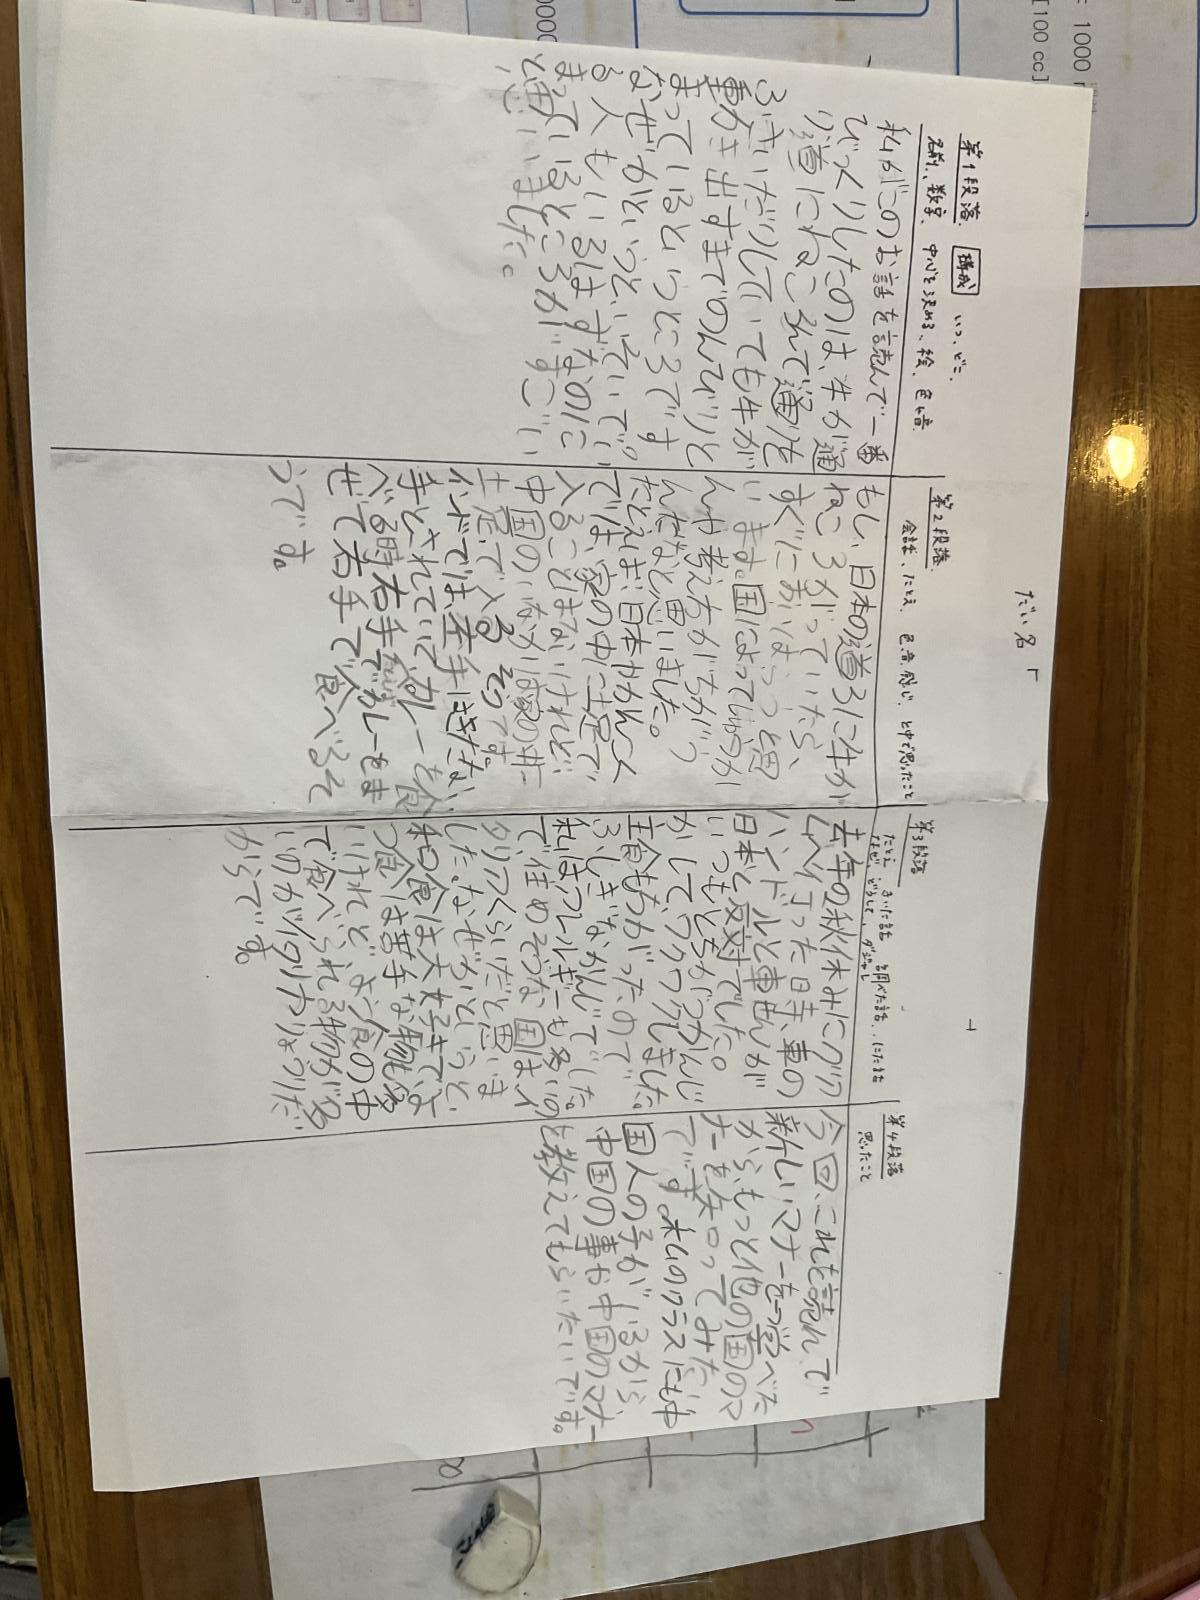 だい名「
」
第1段落 構成 いつ、どこ、
名前、数字、中心を決める、絵、色、音
私がこのお話を読んで一番
びっくりしたのは、牛が通
り道にねころんで通せ
んぼ
動き出すまでのんびりと
まっているというところです。
なぜかというと、いそいでい
る人もいるはずなのに
まっているところがすごい
と思いました。
第2段落
会話、たとえ、色、音、感じ、と中で思ったこと
もし、日本の道ろに牛が
ねころがっていたら、
すぐにおいはらうと思
います。国によってしゅうか
んや考え方がちがう
んだなと思いました。
たとえば、日本やかんこく
では、家の中に土足で
入ることはないけれど、
中国のいなかは家の中に
土足で入るそうです。
インドでは、左手はきたない
手とされていてカレーを食
べる時右手でカレーをま
ぜて右手で食べるそ
うです。
第3段落
たとえ、きいた話、調べた話、にた話
なぜ、どうして、ダジャレ
去年の秋休みにグア
ムへ行った日時、車の
ハンドルと車せんが
日本と反対でした。
いつもとちがうかんじ
がして、ワクワクしました。
主食もちがったので
ふしぎなかんじでした。
私はアレルギーも多いの
で、住めそうな国はイ
タリアくらいだと思いま
した。なぜかというと、
和食は大好きでよ
く食
いけれど、よう食の中
で食べられる物が多
いのがイタリアりょうりだ
からです。
第4段落
思ったこと
今回、これを読んで
新しいマナーを学べた
から、もっと他の国のマ
ナーを知ってみたい
です。私のクラスにも中
国人の子がいるから
中国の事や中国のマナー
を教えてもらいたいです。
= 1000
[100 cc]